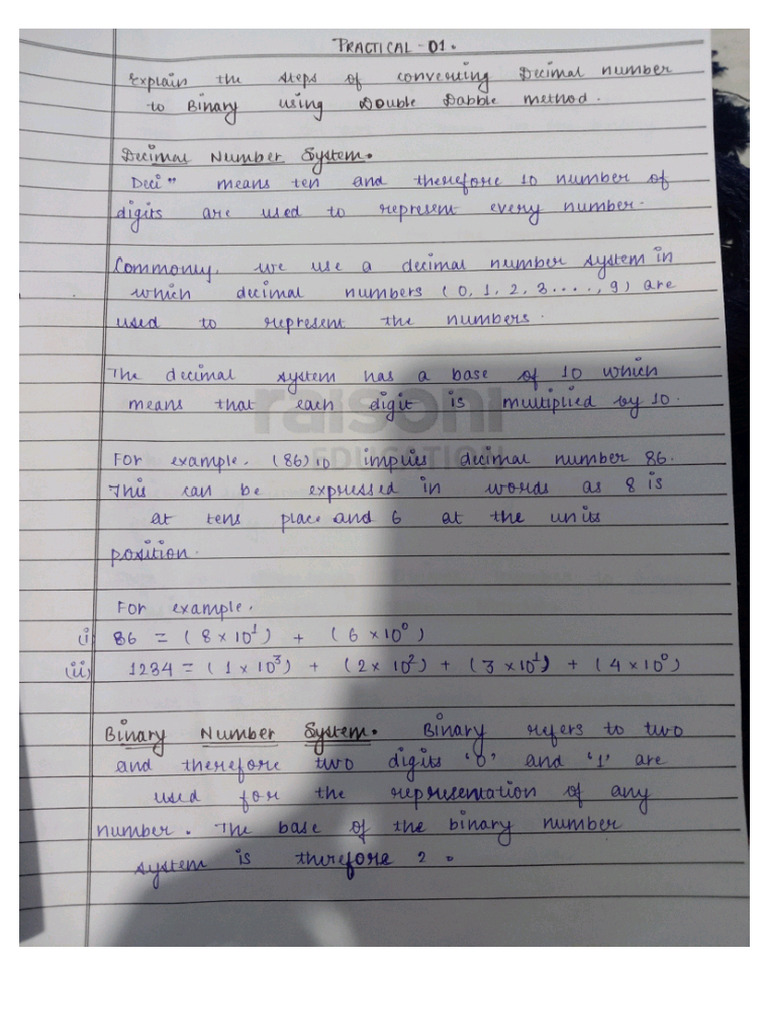 PRACTICAL - 01.
Explain the steps of converting Decimal number
to Binary using Double Dabble method.
Decimal Number System.
Deci" means ten and therefore 10 number of
digits are used to represent every number.
Commonly, we use a decimal number system in
which decimal numbers (0, 1, 2, 3....., 9) are
used to represent the numbers.
The decimal system has a base of 10 which
means that each digit is multiplied by 10.
raisoni
EDUCATION
For example. (86)10 implies decimal number 86.
This can be expressed in words as 8 is
at tens place and 6 at the units
position.
For example.
(i) 86 = (8 × 10¹) + (6 × 10⁰)
(ii) 1234 = (1 × 10³) + (2 × 10²) + (3 × 10¹) + (4 × 10⁰)
Binary Number System. Binary refers to two
and therefore two digits '0' and '1' are
used for the representation of any
number. The base of the binary number
system is therefore 2.